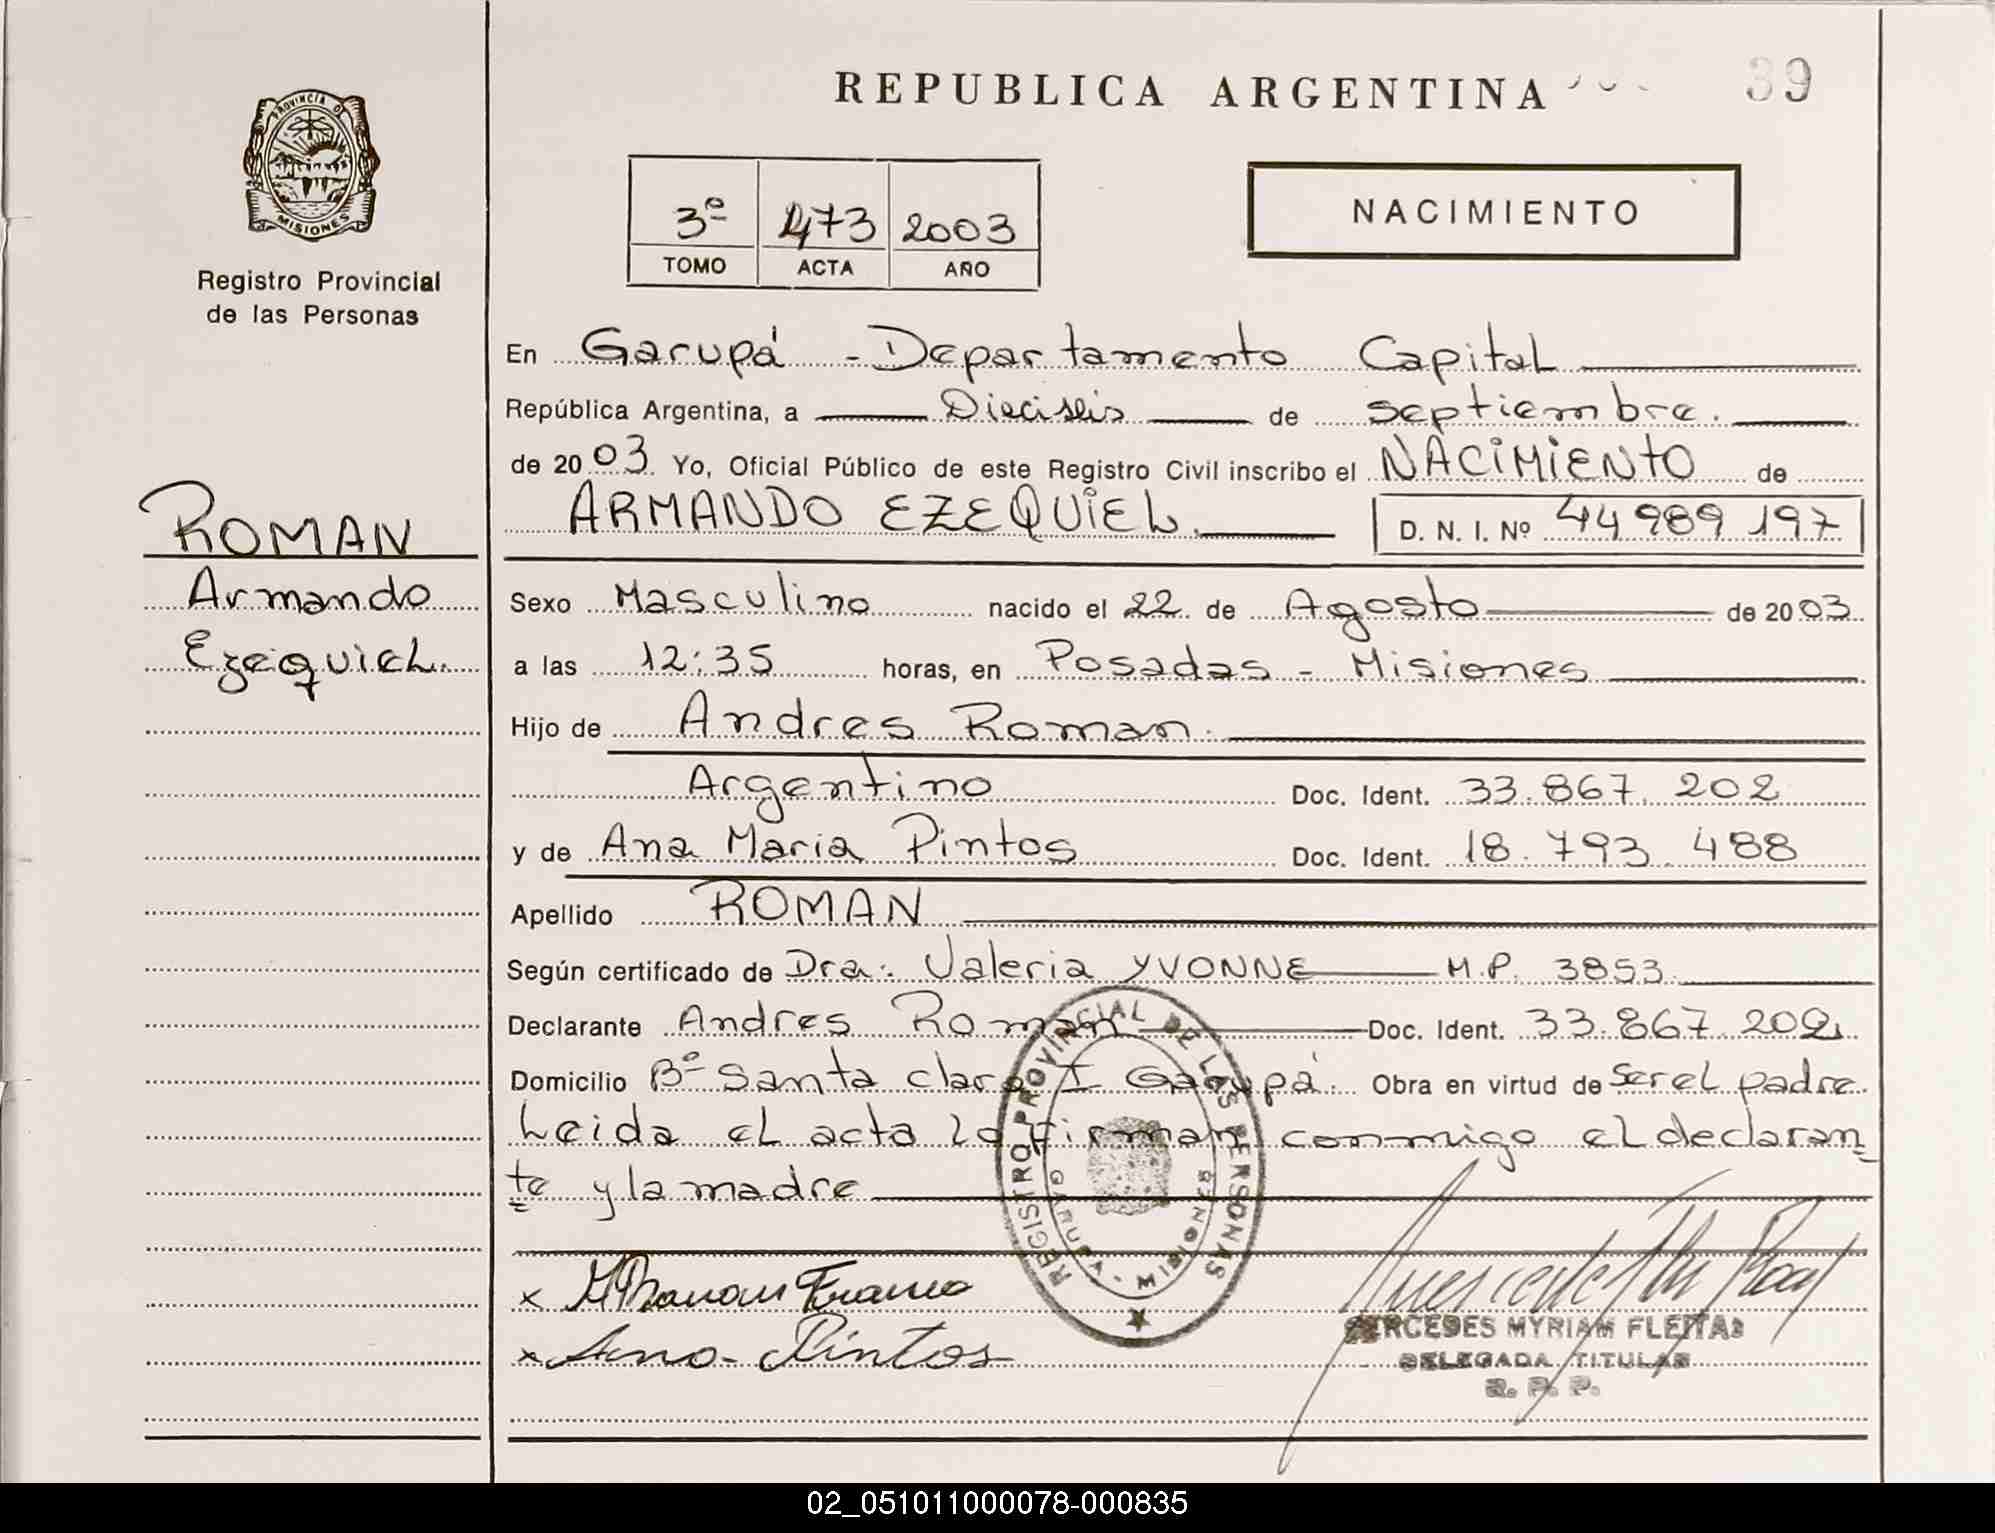 REPUBLICA ARGENTINA
39
PROVINCIA DE
MISIONES
Registro Provincial
de las Personas
3º 473 2003
TOMO ACTA AÑO
NACIMIENTO
En Garupá - Departamento Capital
República Argentina, a Dieciseis de septiembre.
de 2003. Yo, Oficial Público de este Registro Civil inscribo el NACIMIENTO de
ARMANDO EZEQUIEL. D. N. I. Nº 44989197
ROMAN
Armando
Ezequiel.
Sexo Masculino nacido el 22 de Agosto de 2003
a las 12:35 horas, en Posadas - Misiones
Hijo de Andres Roman.
Argentino Doc. Ident. 33.867.202
y de Ana Maria Pintos Doc. Ident. 18.793.488
Apellido ROMAN
Según certificado de Dra. Valeria YVONNE M.P. 3853
Declarante Andres Roman Doc. Ident. 33.867.202
Domicilio Bº Santa clara I Garupá. Obra en virtud de Ser el padre.
Leida el acta la firman conmigo el declaran
te y la madre
REGISTRO PROVINCIAL DE LAS PERSONAS
GARUPA - MISIONES
x Roman Franco
x Ana Pintos
MERCEDES MYRIAM FLEITAS
DELEGADA TITULAR
R. P. P.
02_051011000078-000835